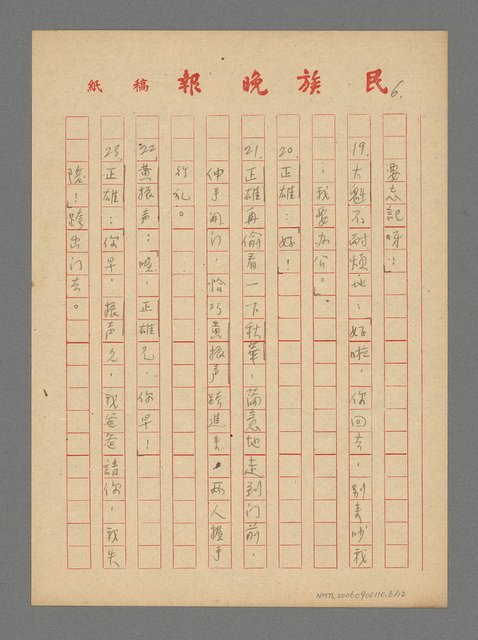 民族晚報 稿紙
6.
要忘記呀！」
19. 大魁不耐煩地：「好啦，你回去，別來吵我
，我要办公。」
20. 正雄：「好！」
21. 正雄再偷看一下秋華，萬急地走到门前，
伸手開门，恰巧黃振声跨進來，兩人握手
行礼。
22. 黃振声：「噢，正雄兄，你早！」
23. 正雄：「你早，振声兄，我爸爸請你，我失
陪！」跨出门去。
NMTL20060900110.6/12